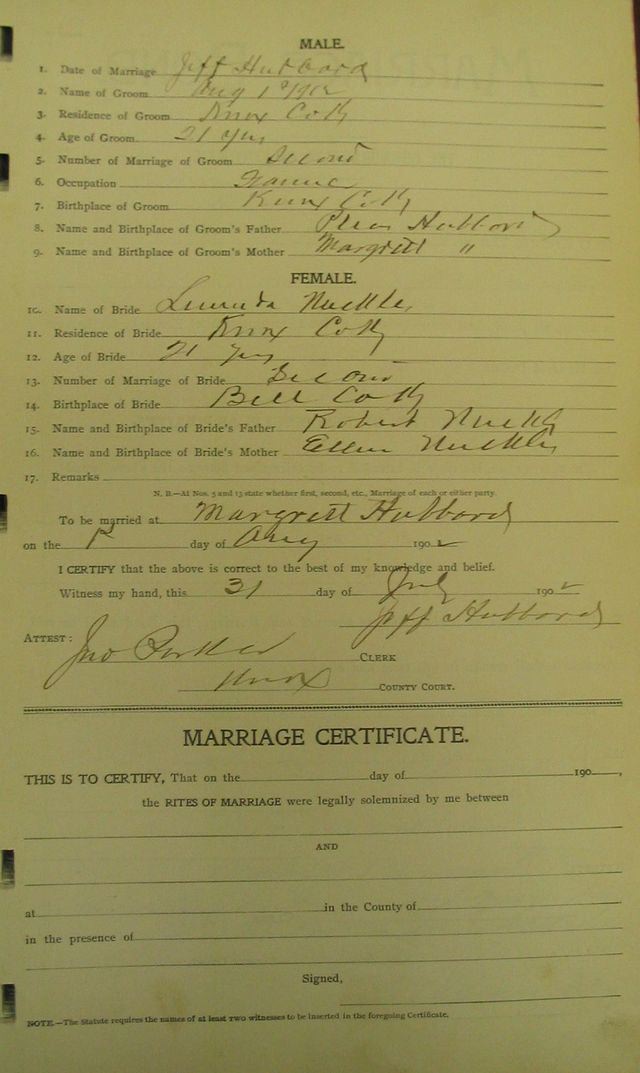 MALE.
1. Date of Marriage Jeff Hubbard
2. Name of Groom Aug 1st 1902
3. Residence of Groom Knox Co Ky
4. Age of Groom 21 yrs
5. Number of Marriage of Groom Second
6. Occupation Farmer
7. Birthplace of Groom Knox Co Ky
8. Name and Birthplace of Groom's Father Pleas Hubbard
9. Name and Birthplace of Groom's Mother Margrett "
FEMALE.
10. Name of Bride Lucinda Nuckles
11. Residence of Bride Knox Co Ky
12. Age of Bride 21 yrs
13. Number of Marriage of Bride Second
14. Birthplace of Bride Bell Co Ky
15. Name and Birthplace of Bride's Father Robert Nuckles
16. Name and Birthplace of Bride's Mother Ellen Nuckles
17. Remarks
N. B.—At Nos. 5 and 13 state whether first, second, etc., Marriage of each or either party.
To be married at Margrett Hubbards
on the 1st day of Aug 1902
I CERTIFY that the above is correct to the best of my knowledge and belief.
Witness my hand, this 31 day of July 1902
Jeff Hubbard
ATTEST: Jno Parker CLERK
Knox COUNTY COURT.
MARRIAGE CERTIFICATE.
THIS IS TO CERTIFY, That on the day of 190 ,
the RITES OF MARRIAGE were legally solemnized by me between
AND
at in the County of
in the presence of
Signed,
NOTE.—The Statute requires the names of at least two witnesses to be inserted in the foregoing Certificate.